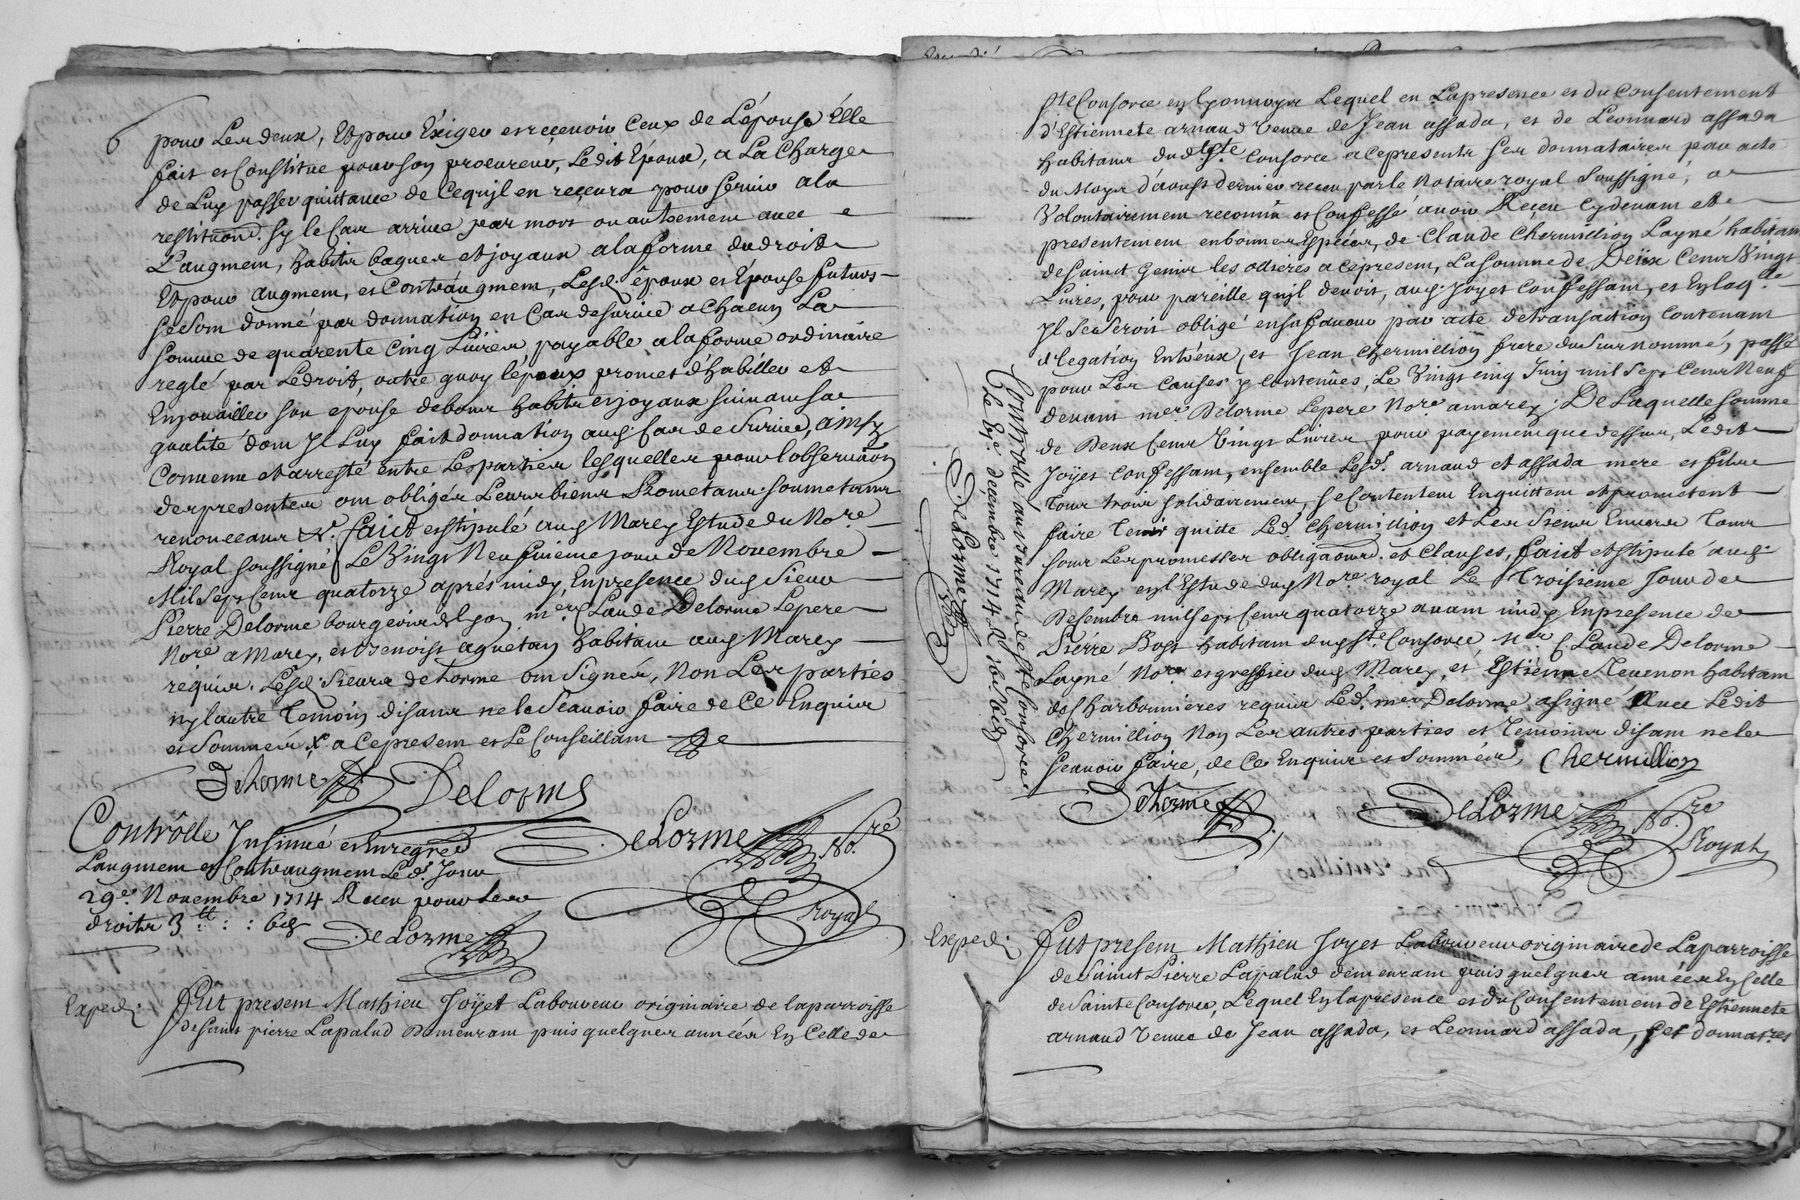 6
pour Les deux, Et pour Exiger et recevoir Ceux de L'épouse Elle
fait et Constitue pour son procureur, Ledit Epoux, a La Charge
de Luy passer quittance de Ce quil en recevra pour servir a la
restituon. sy le Cas arrive par mort ou autrement avec
L'augment, habits bagues et joyaux a la forme du droit
Et pour augment, et Contraugment, Lesd. époux et Epouse futurs
se sont donné par donnation en Cas de survie a Chacun La
somme de quarente Cinq Livres payable a la forme ordinaire
reglé par Le droit, outre quoy l'époux promet d'habiller et
Enjouailler son epouse de bons habits et joyaux suivant sa
qualité dont Il Luy fait donnation aud. Cas de survie, ainsy
Convenu et arresté entre Les parties lesquelles pour l'observaon
des presentes ont obligés Leurs biens Prometans soumetans
renonceans &c. faict et stipulé aud Marcy Estude du Nore
Royal soussigné Le Vingt Neufvieme jour de Novembre
Mil Sept Cent quatorze aprés midy, En presence dud Sieur
Pierre Delorme bourgeois de Lyon mre Claude Delorme Le pere
Nore a Marcy, et Benoist aguetan habitant aud Marcy
requis. Lesd. Sieurs delorme ont Signés, Non Les parties
ny lautre Temoin disant ne le Scavoir faire de Ce Enquis
et Sommés a Ce present et Le Conseillant
Delorme Delorme
Contrôlle Insinué et Enregred
Laugment et Contraugment Led. Jour
29e Novembre 1714 Receu pour Les
droits 3 tt : : 6d
Delorme
Delorme No.re
Royal
Exped.
Fut present Mathieu Joyet Laboureur originaire de la parroisse
de Saint pierre Lapalud Demeurant puis quelques années En Celle de
Ste Consorce en lyonnoys Lequel en La presence et du Consentement
d'Estiennete arnaud Veuve de Jean assada, et de Leonnard assada
habitans dud Ste Consorce a ce presents ses donnataires par acte
du Moys d'aoust dernier receu par le Notaire royal Soussigné, a
Volontairement reconnu et Confessé avoir Receu cy devant et
presentement en bonnes Especes, de Claude Chermillion Layné habitant
de Sainct Genis les ollieres a ce present, La somme de Deux Cent Vingt
Livres, pour pareille qu'il devoit, aud. Joyet Confessant, et En laq.lle
Il se seroit obligé en sa faveur par acte de transaction contenant
Entreux, et Jean Chermillion frere du Surnommé, passé
pour Les Causes y Contenües, Le Vingt cinq Juin mil Sept Cent Neuf
devant mer Delorme Le pere Nore a marcy; De Laquelle somme
de Deux Cent Vingt Livres pour payement que dessus, Ledit
Joyet Confessant, ensemble Lesd. arnaud et assada mere et fils
tous trois solidairement, se Contentent Enquittent et prometent
faire tenir quitte Led. Chermillion et Les Siens Envers Tous
sous Les promesses obligaons. et Clauses, faict et stipulé aud.
Marcy en l'Estude dud Nore royal Le Troisieme Jour de
Desembre mil sept Cent quatorze avant midy En presence de
Pierre habitant dud Ste Consorce, mer Claude Delorme
Layné Nore et greffier dud Marcy, et Estienne Tevenon habitant
de Charbonnieres requis Led. mer Delorme a signé avec Ledit
Chermillion Non Les autres parties et Temoins disant ne le
Scavoir faire, de Ce Enquis et Sommés, Chermillion
Delorme Delorme No.re
Royal
Contrôllé au bureau de Ste Consorce
Le decembre 1714
Delorme
Exped.
Fut present Mathieu Joyet Laboureur originaire de La parroisse
de Saint Pierre Lapalud demeurant puis quelques années En Celle
de Sainte Consorce, Lequel En la presence et du Consentement de Estiennete
arnaud Veuve de Jean assada, et Leonnard assada, ses donnat.res